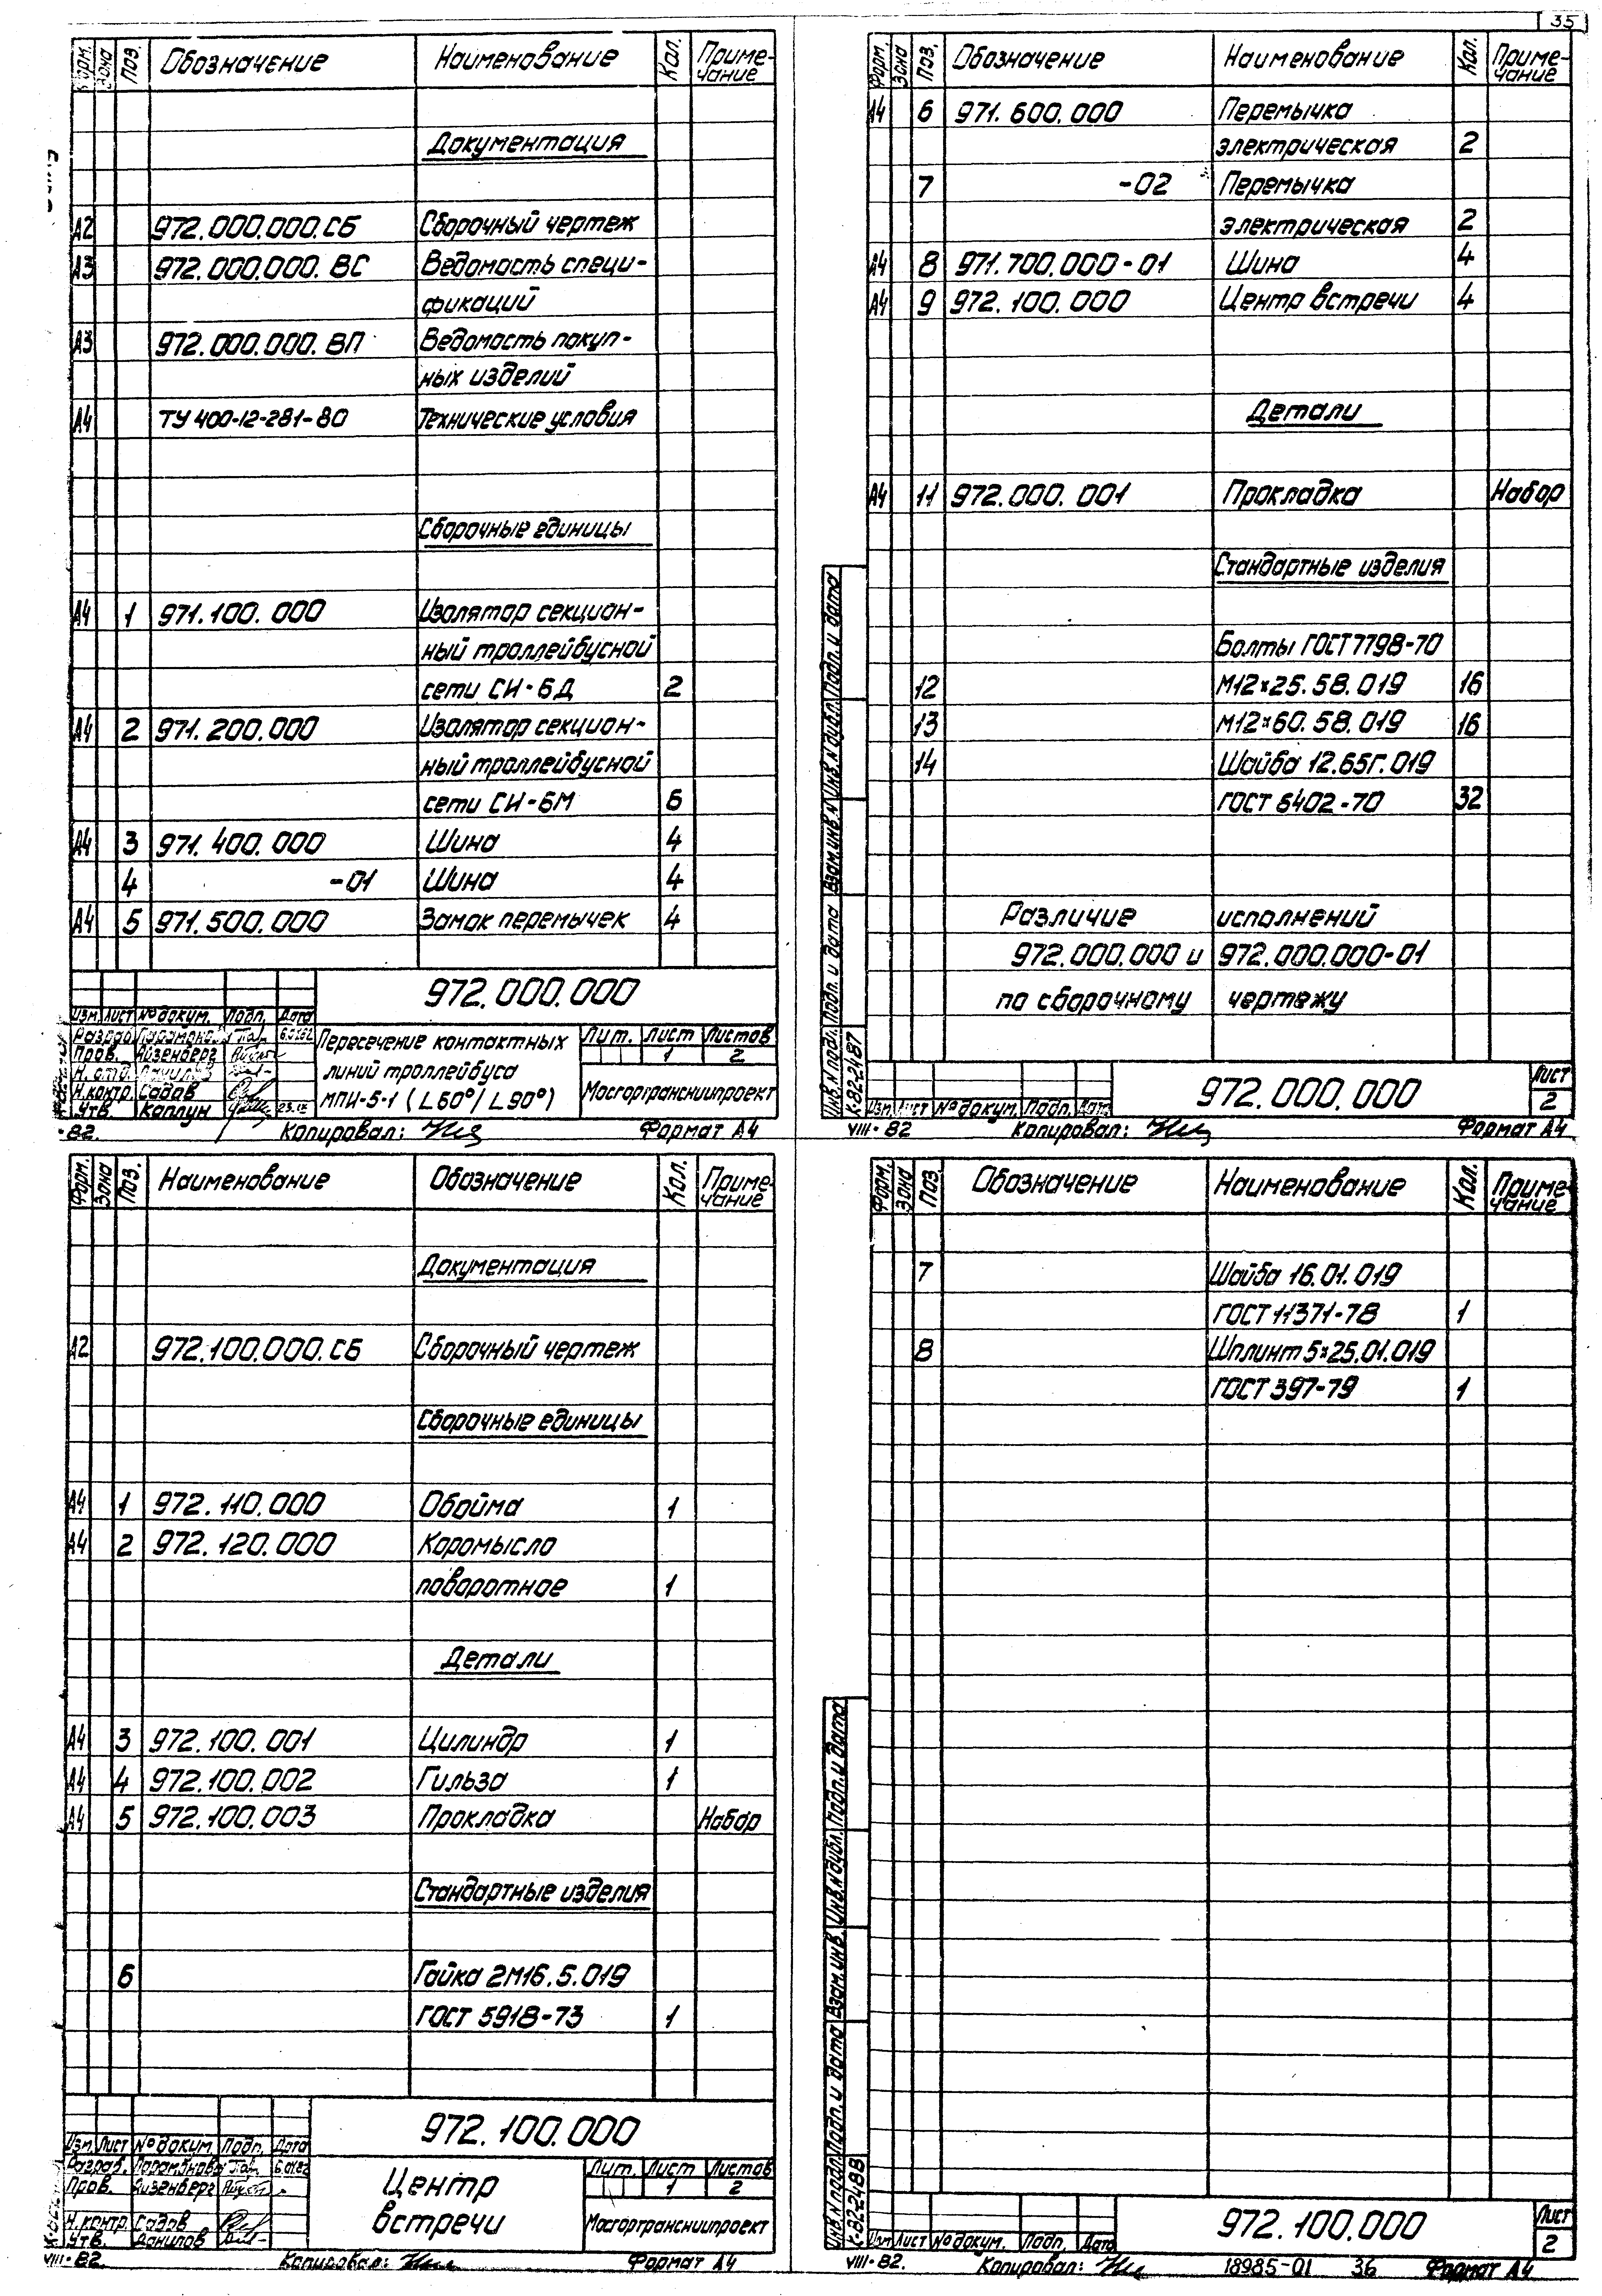 35
Форм. Зона Поз. Обозначение Наименование Кол. Приме-
чание
Документация
А2 972.000.000.СБ Сборочный чертеж
А3 972.000.000.ВС Ведомость специ-
фикаций
А3 972.000.000.ВП Ведомость покуп-
ных изделий
А4 ТУ 400-12-281-80 Технические условия
Сборочные единицы
А4 1 971.100.000 Изолятор секцион-
ный троллейбусной
сети СИ-6Д 2
А4 2 971.200.000 Изолятор секцион-
ный троллейбусной
сети СИ-6М 6
А4 3 971.400.000 Шина 4
4 -01 Шина 4
А4 5 971.500.000 Замок перемычек 4
972.000.000
Изм. Лист № докум. Подп. Дата
Пров. Айзенберг
Н.контр. Садов
Утв. Каплун
Пересечение контактных
линий троллейбуса
МПИ-5-1 (∟60°/∟90°)
Лит. Лист Листов
1 2
Мосгортрансниипроект
-82. Копировал: Формат А4
Форм. Зона Поз. Обозначение Наименование Кол. Приме-
чание
А4 6 971.600.000 Перемычка
электрическая 2
7 -02 Перемычка
электрическая 2
А4 8 971.700.000-01 Шина 4
А4 9 972.100.000 Центр встречи 4
Детали
А4 11 972.000.001 Прокладка Набор
Стандартные изделия
Болты ГОСТ 7798-70
12 М12×25.58.019 16
13 М12×60.58.019 16
14 Шайба 12.65Г.019
ГОСТ 6402-70 32
Различие исполнений
972.000.000 и 972.000.000-01
по сборочному чертежу
Инв.N подл. Подп. и дата Взам.инв.N Инв.N дубл. Подп. и дата
К-82-2487
972.000.000
Лист
2
Изм. Лист № докум. Подп. Дата
VIII-82 Копировал: Формат А4
Форм. Зона Поз. Наименование Обозначение Кол. Приме-
чание
Документация
А2 972.100.000.СБ Сборочный чертеж
Сборочные единицы
А4 1 972.110.000 Обойма 1
А4 2 972.120.000 Коромысло
поворотное 1
Детали
А4 3 972.100.001 Цилиндр 1
А4 4 972.100.002 Гильза 1
А4 5 972.100.003 Прокладка Набор
Стандартные изделия
6 Гайка 2М16.5.019
ГОСТ 5918-73 1
972.100.000
Изм. Лист № докум. Подп. Дата
Разраб.
Пров. Айзенберг
Н.контр. Садов
Утв. Данилов
Центр
встречи
Лит. Лист Листов
1 2
Мосгортрансниипроект
VIII-82. Копировал: Формат А4
Форм. Зона Поз. Обозначение Наименование Кол. Приме-
чание
7 Шайба 16.01.019
ГОСТ 11371-78 1
8 Шплинт 5×25.01.019
ГОСТ 397-79 1
Инв.N подл. Подп. и дата Взам.инв. Инв.N дубл. Подп. и дата
К-82-2488
972.100.000
Лист
2
Изм. Лист № докум. Подп. Дата
VIII-82. Копировал: 18985-01 36 Формат А4